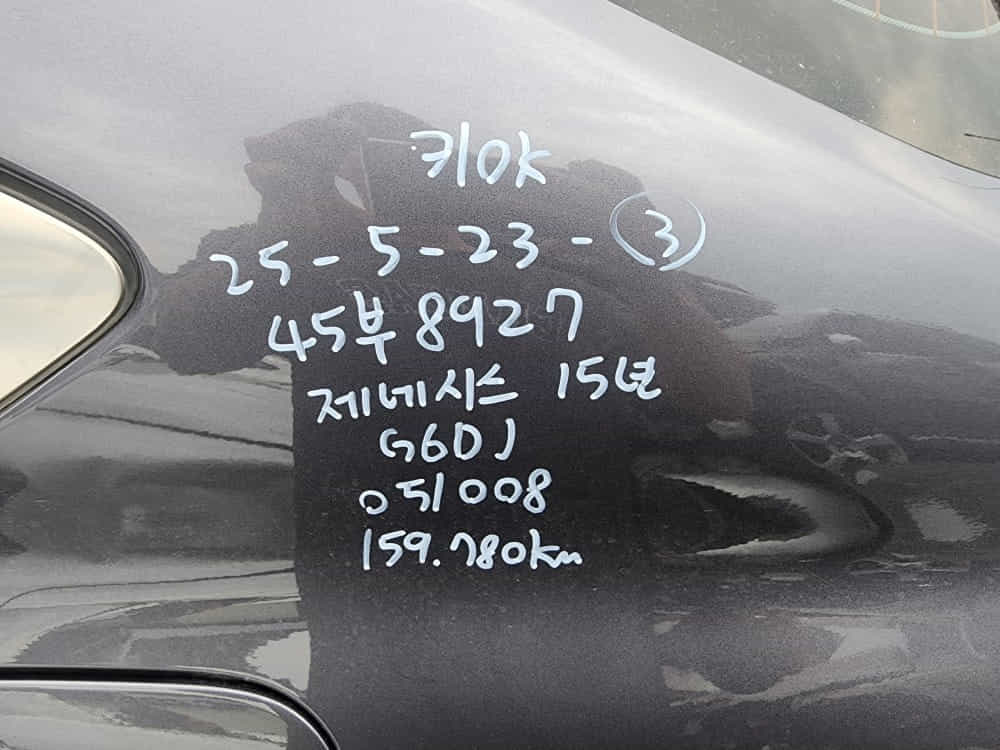 키야
25-5-23-③
45부8927
제네시스 15년
G6DJ
051008
159.780km